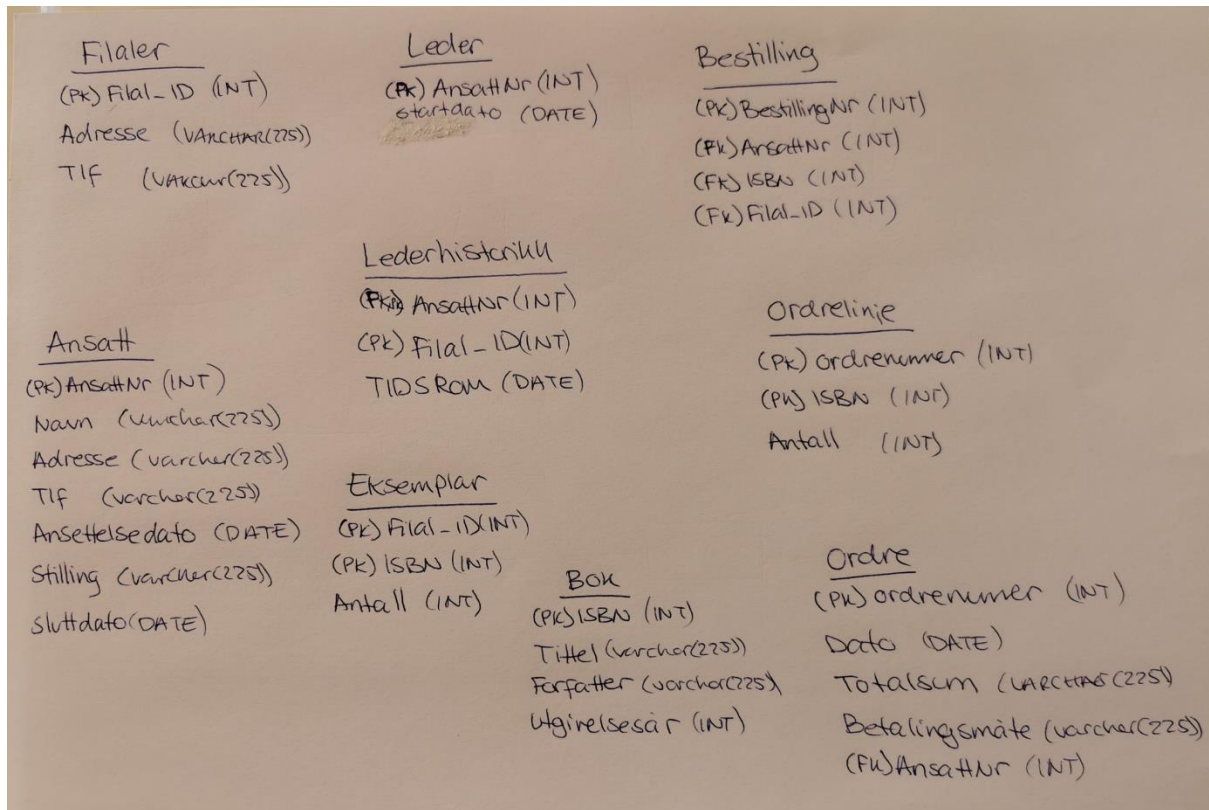 Filaler
(PK) Filal_ID (INT)
Adresse (VARCHAR(225))
Tlf (VARCHAR(225))
Leder
(PK) AnsattNr (INT)
startdato (DATE)
Bestilling
(PK) BestillingNr (INT)
(FK) AnsattNr (INT)
(FK) ISBN (INT)
(FK) Filal_ID (INT)
Lederhistorikk
AnsattNr (INT)
(PK) Filal_ID (INT)
TIDSROM (DATE)
Ordrelinje
(PK) ordrenummer (INT)
(PK) ISBN (INT)
Antall (INT)
Ansatt
(PK) AnsattNr (INT)
Navn (varchar(225))
Adresse (varchar(225))
Tlf (varchar(225))
Ansettelsedato (DATE)
Stilling (varchar(225))
sluttdato (DATE)
Eksemplar
(PK) Filal_ID (INT)
(PK) ISBN (INT)
Antall (INT)
Bok
(PK) ISBN (INT)
Tittel (varchar(225))
Forfatter (varchar(225))
Utgivelsesår (INT)
Ordre
(PK) ordrenummer (INT)
Dato (DATE)
Totalsum (VARCHAR(225))
Betalingsmåte (varchar(225))
(FK) AnsattNr (INT)